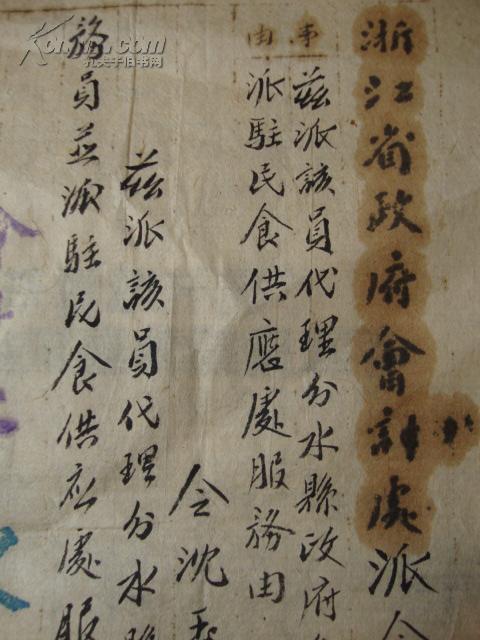 浙江省政府會計處派令
事由
茲派該員代理分水縣政府
派駐民食供應處服務由
令沈
茲派該員代理分水縣
務員並派駐民食供应處服
Kongfz.com
孔夫子旧书网